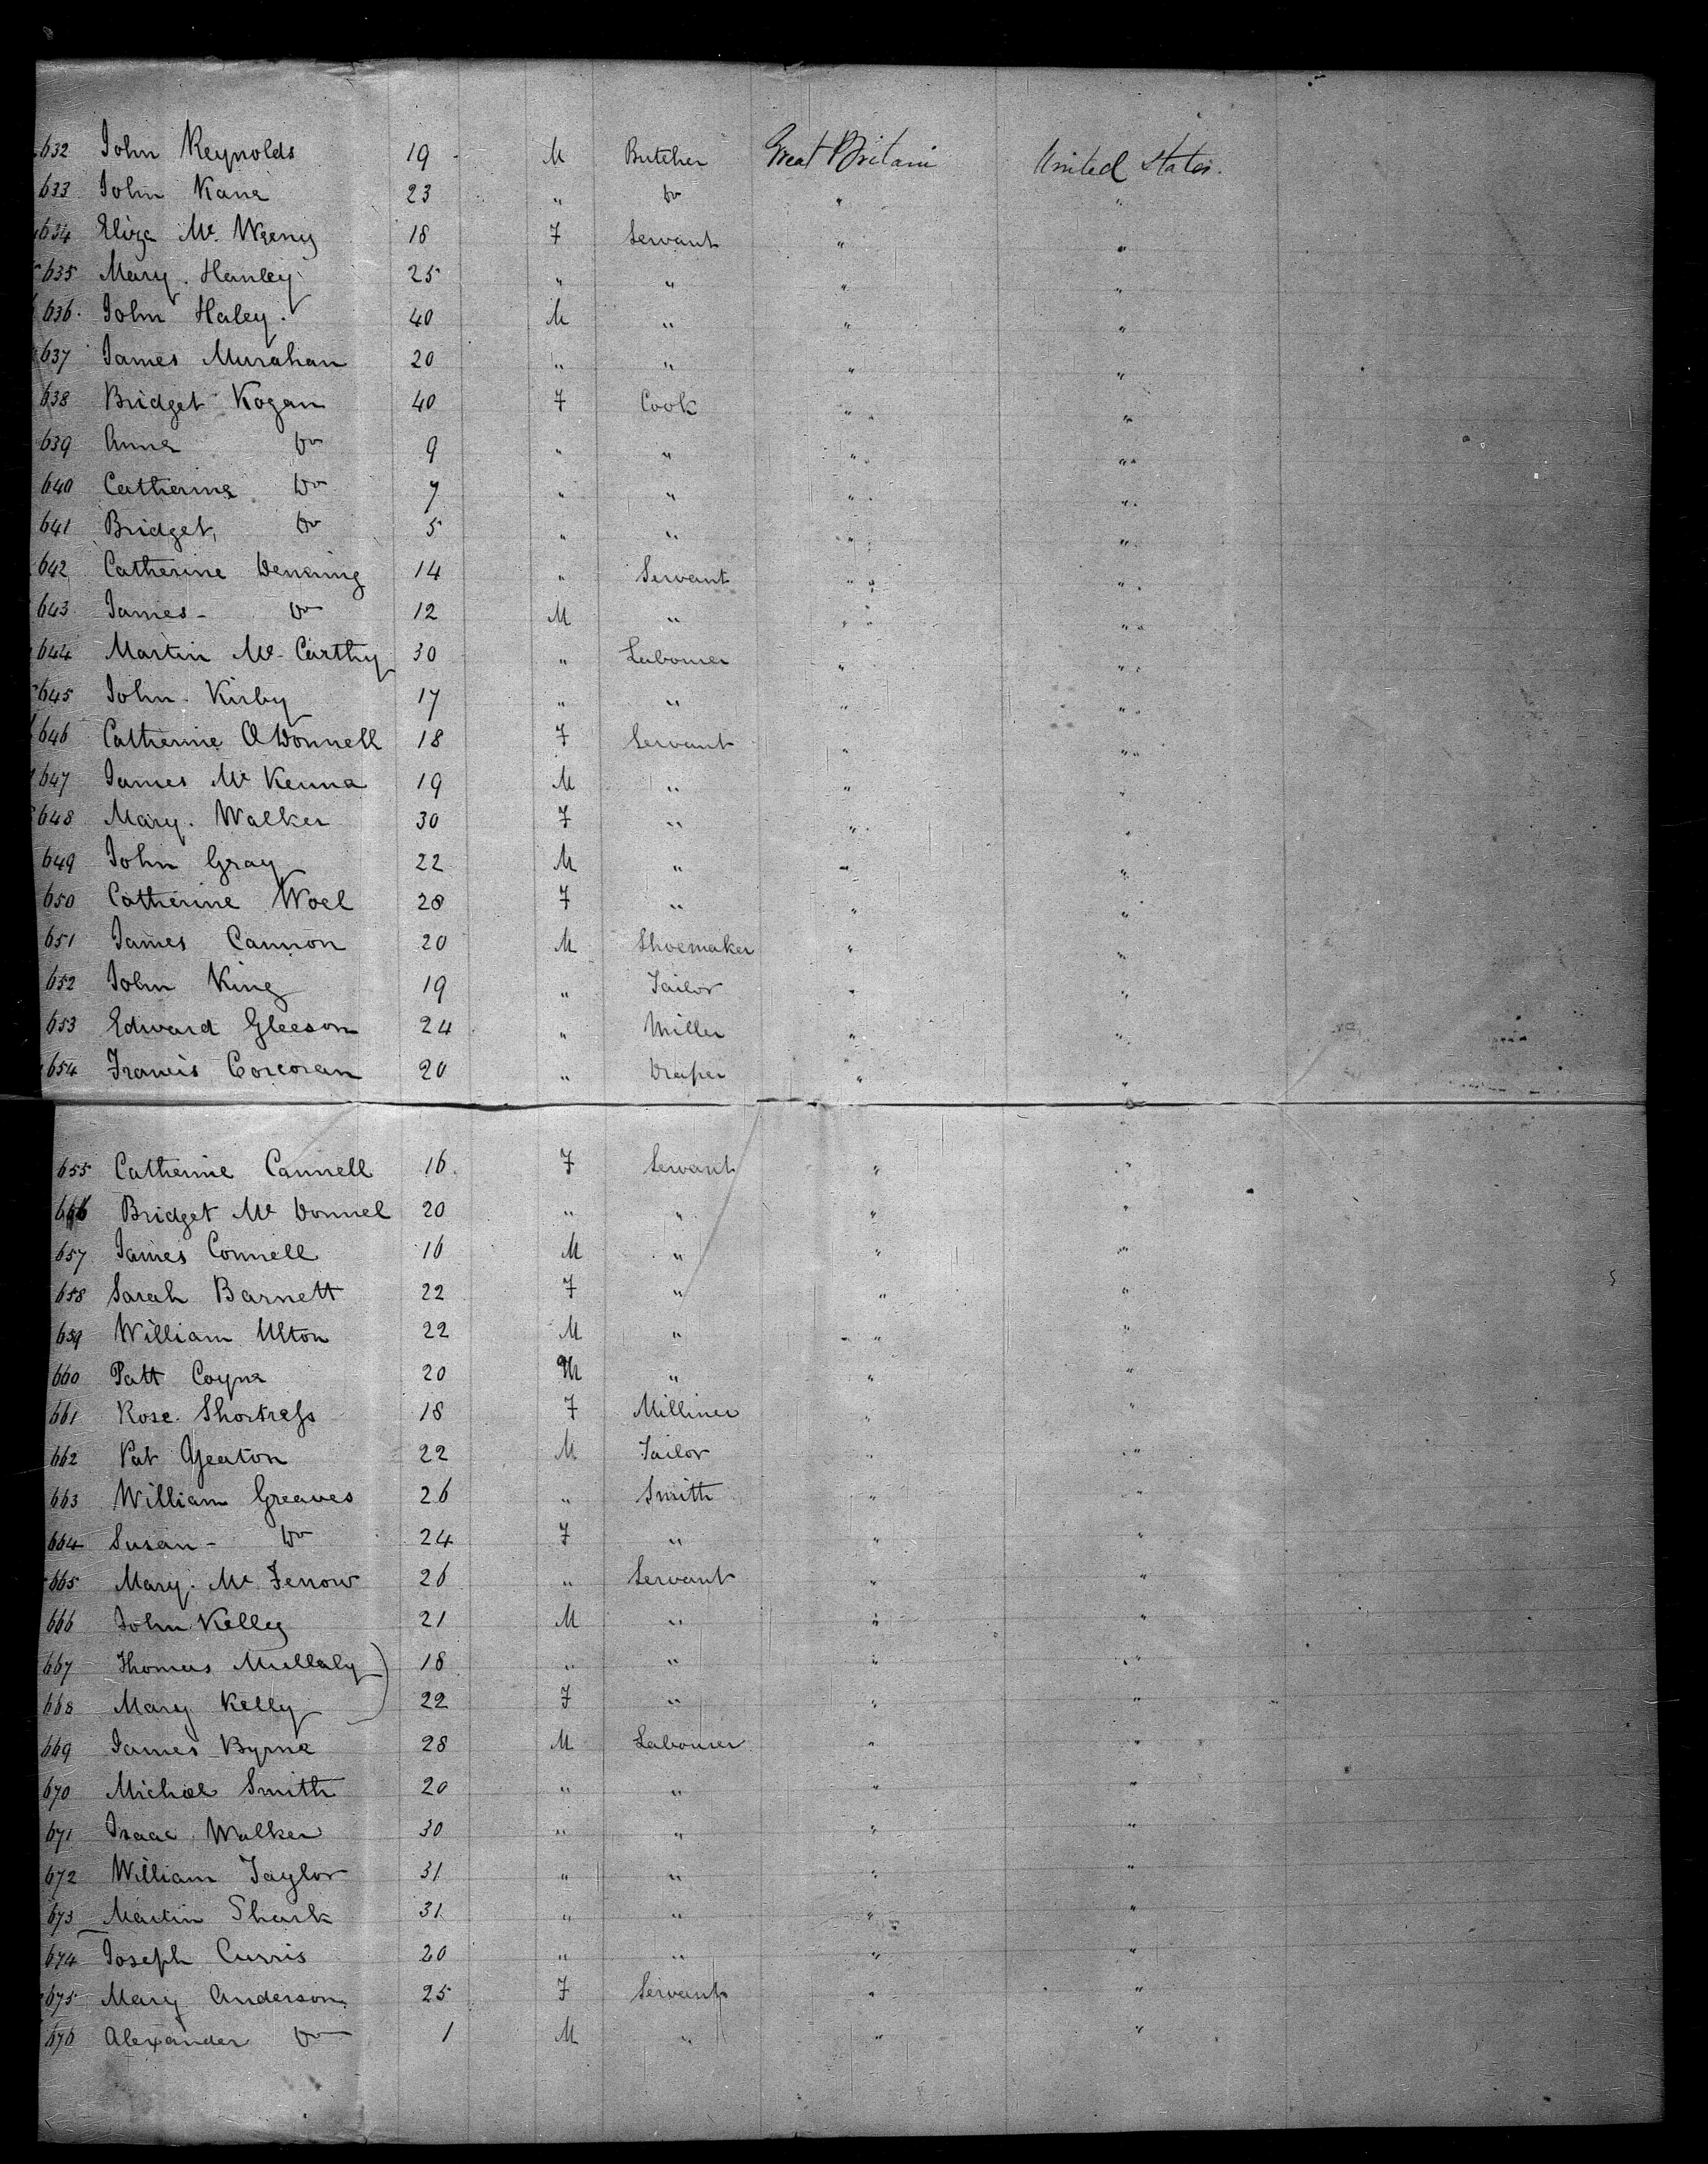 632 John Reynolds 19 M Butcher Great Britain United States.
633 John Kane 23 " Do " "
634 Eliza Mc 18 F Servant " "
635 Mary Hanley 25 " " " "
636 John Haley 40 M " " "
637 James Murahan 20 " " " "
638 Bridget Kogan 40 F Cook " "
639 Anna Do 9 " " " "
640 Catherine Do 7 " " " "
641 Bridget Do 5 " " " "
642 Catherine 14 " Servant " "
643 James - Do 12 M " " "
644 Martin Mc Carthy 30 " Labourer " "
645 John Kirby 17 " " " "
646 Catherine O'Donnell 18 F Servant " "
647 James Mc Kenna 19 M " " "
648 Mary Walker 30 F " " "
649 John Gray 22 M " " "
650 Catherine Woel 28 F " " "
651 James Cannon 20 M Shoemaker " "
652 John King 19 " Tailor " "
653 Edward Gleeson 24 " Miller " "
654 Francis Corcoran 20 " Draper " "
655 Catherine Cannell 16 F Servant " "
656 Bridget Mc Donnel 20 " " " "
657 James Connell 16 M " " "
658 Sarah Barnett 22 F " " "
659 William Ulton 22 M " " "
660 Patt Coyne 20 M " " "
661 Rose Shortress 18 F Milliner " "
662 Pat Yeaton 22 M Tailor " "
663 William Greaves 26 " Smith " "
664 Susan - Do 24 F " " "
665 Mary Mc Ferrow 26 " Servant " "
666 John Kelley 21 M " " "
667 Thomas Mullaly 18 " " " "
668 Mary Kelly 22 F " " "
669 James Byrne 28 M Labourer " "
670 Michael Smith 20 " " " "
671 Isaac Walker 30 " " " "
672 William Taylor 31 " " " "
673 Martin Shark 31 " " " "
674 Joseph Curris 20 " " " "
675 Mary Anderson 25 F Servant " "
676 Alexander Do 1 M " " "